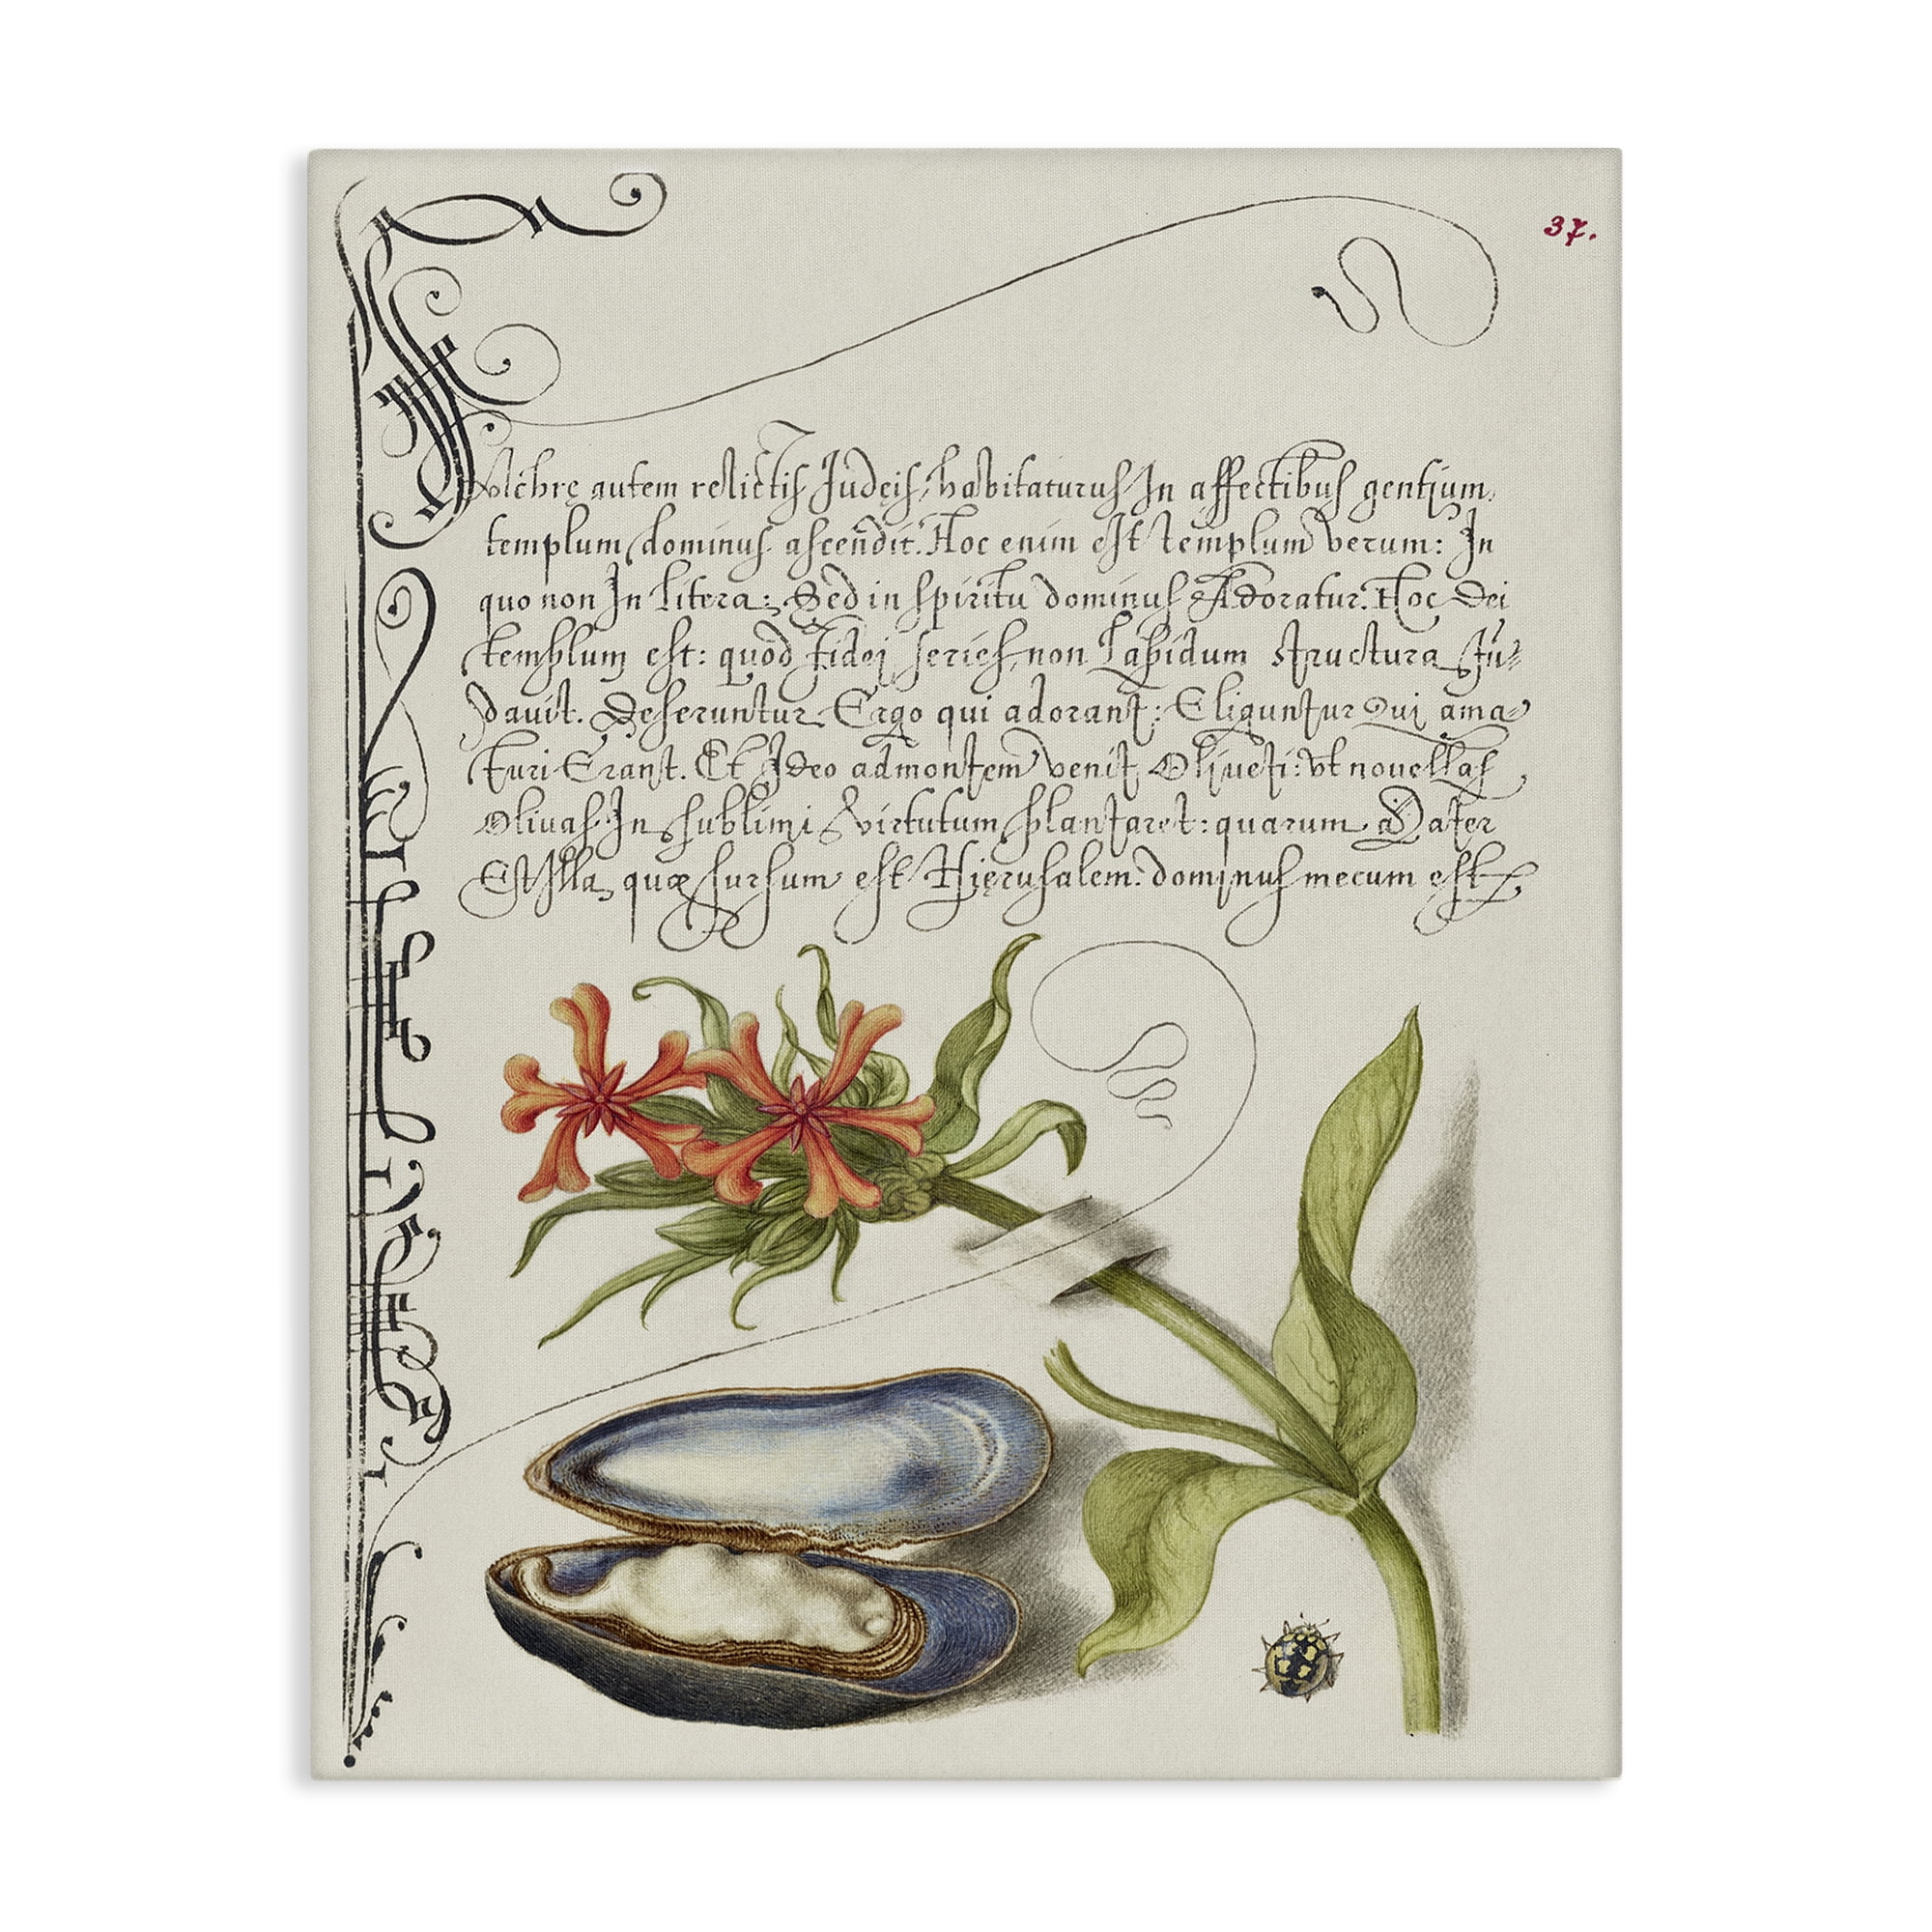 37.
Pulchrę autem relictis Iudeis, habitaturus In affectibus gentium,
templum dominus ascendit. Hoc enim est templum verum: In
quo non In litera: Sed in spiritu dominus Adoratur. Hoc Dei
templum est: quod fidei series, non Lapidum structura fu-
davit. Deseruntur Ergo qui adorant: Eliguntur Qui ama-
turi Erant. Et Ideo ad montem venit Oliueti: vt nouellas
Oliuas In sublimi virtutum plantaret: quarum Mater
Est Illa, quæ sursum est Hięrusalem. dominus mecum est